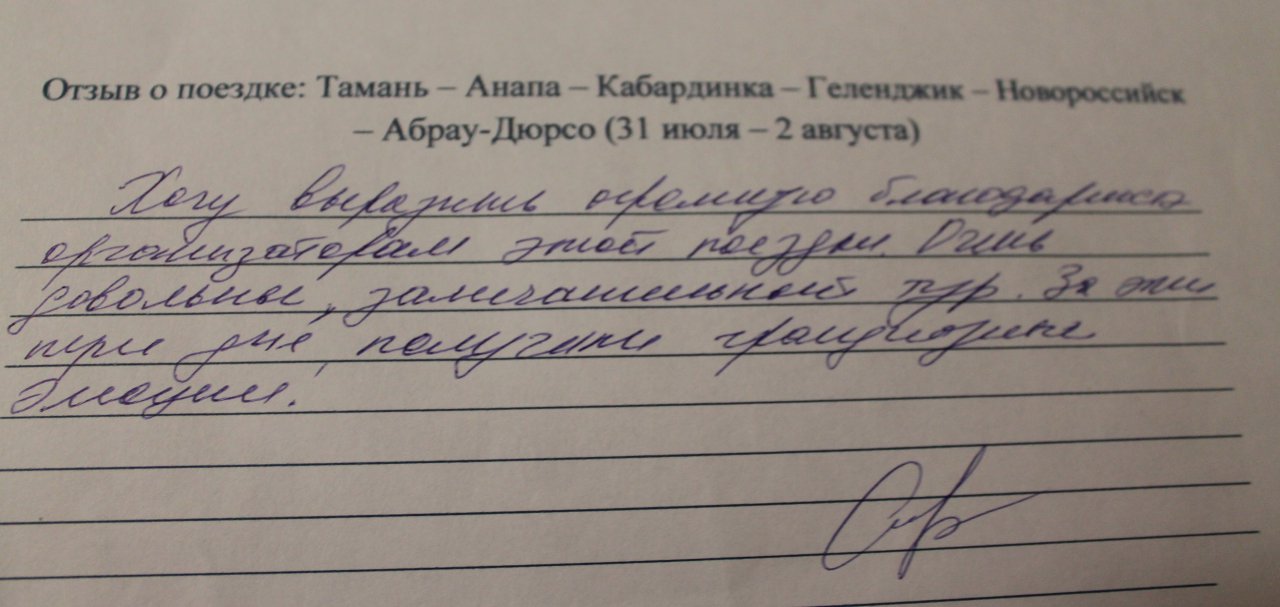 Отзыв о поездке: Тамань – Анапа – Кабардинка – Геленджик – Новороссийск
– Абрау-Дюрсо (31 июля – 2 августа)
Хочу выразить огромную благодарность
организаторам этой поездки. Очень
довольны, замечательный тур. За эти
три дня, получили грандиозные
эмоции.